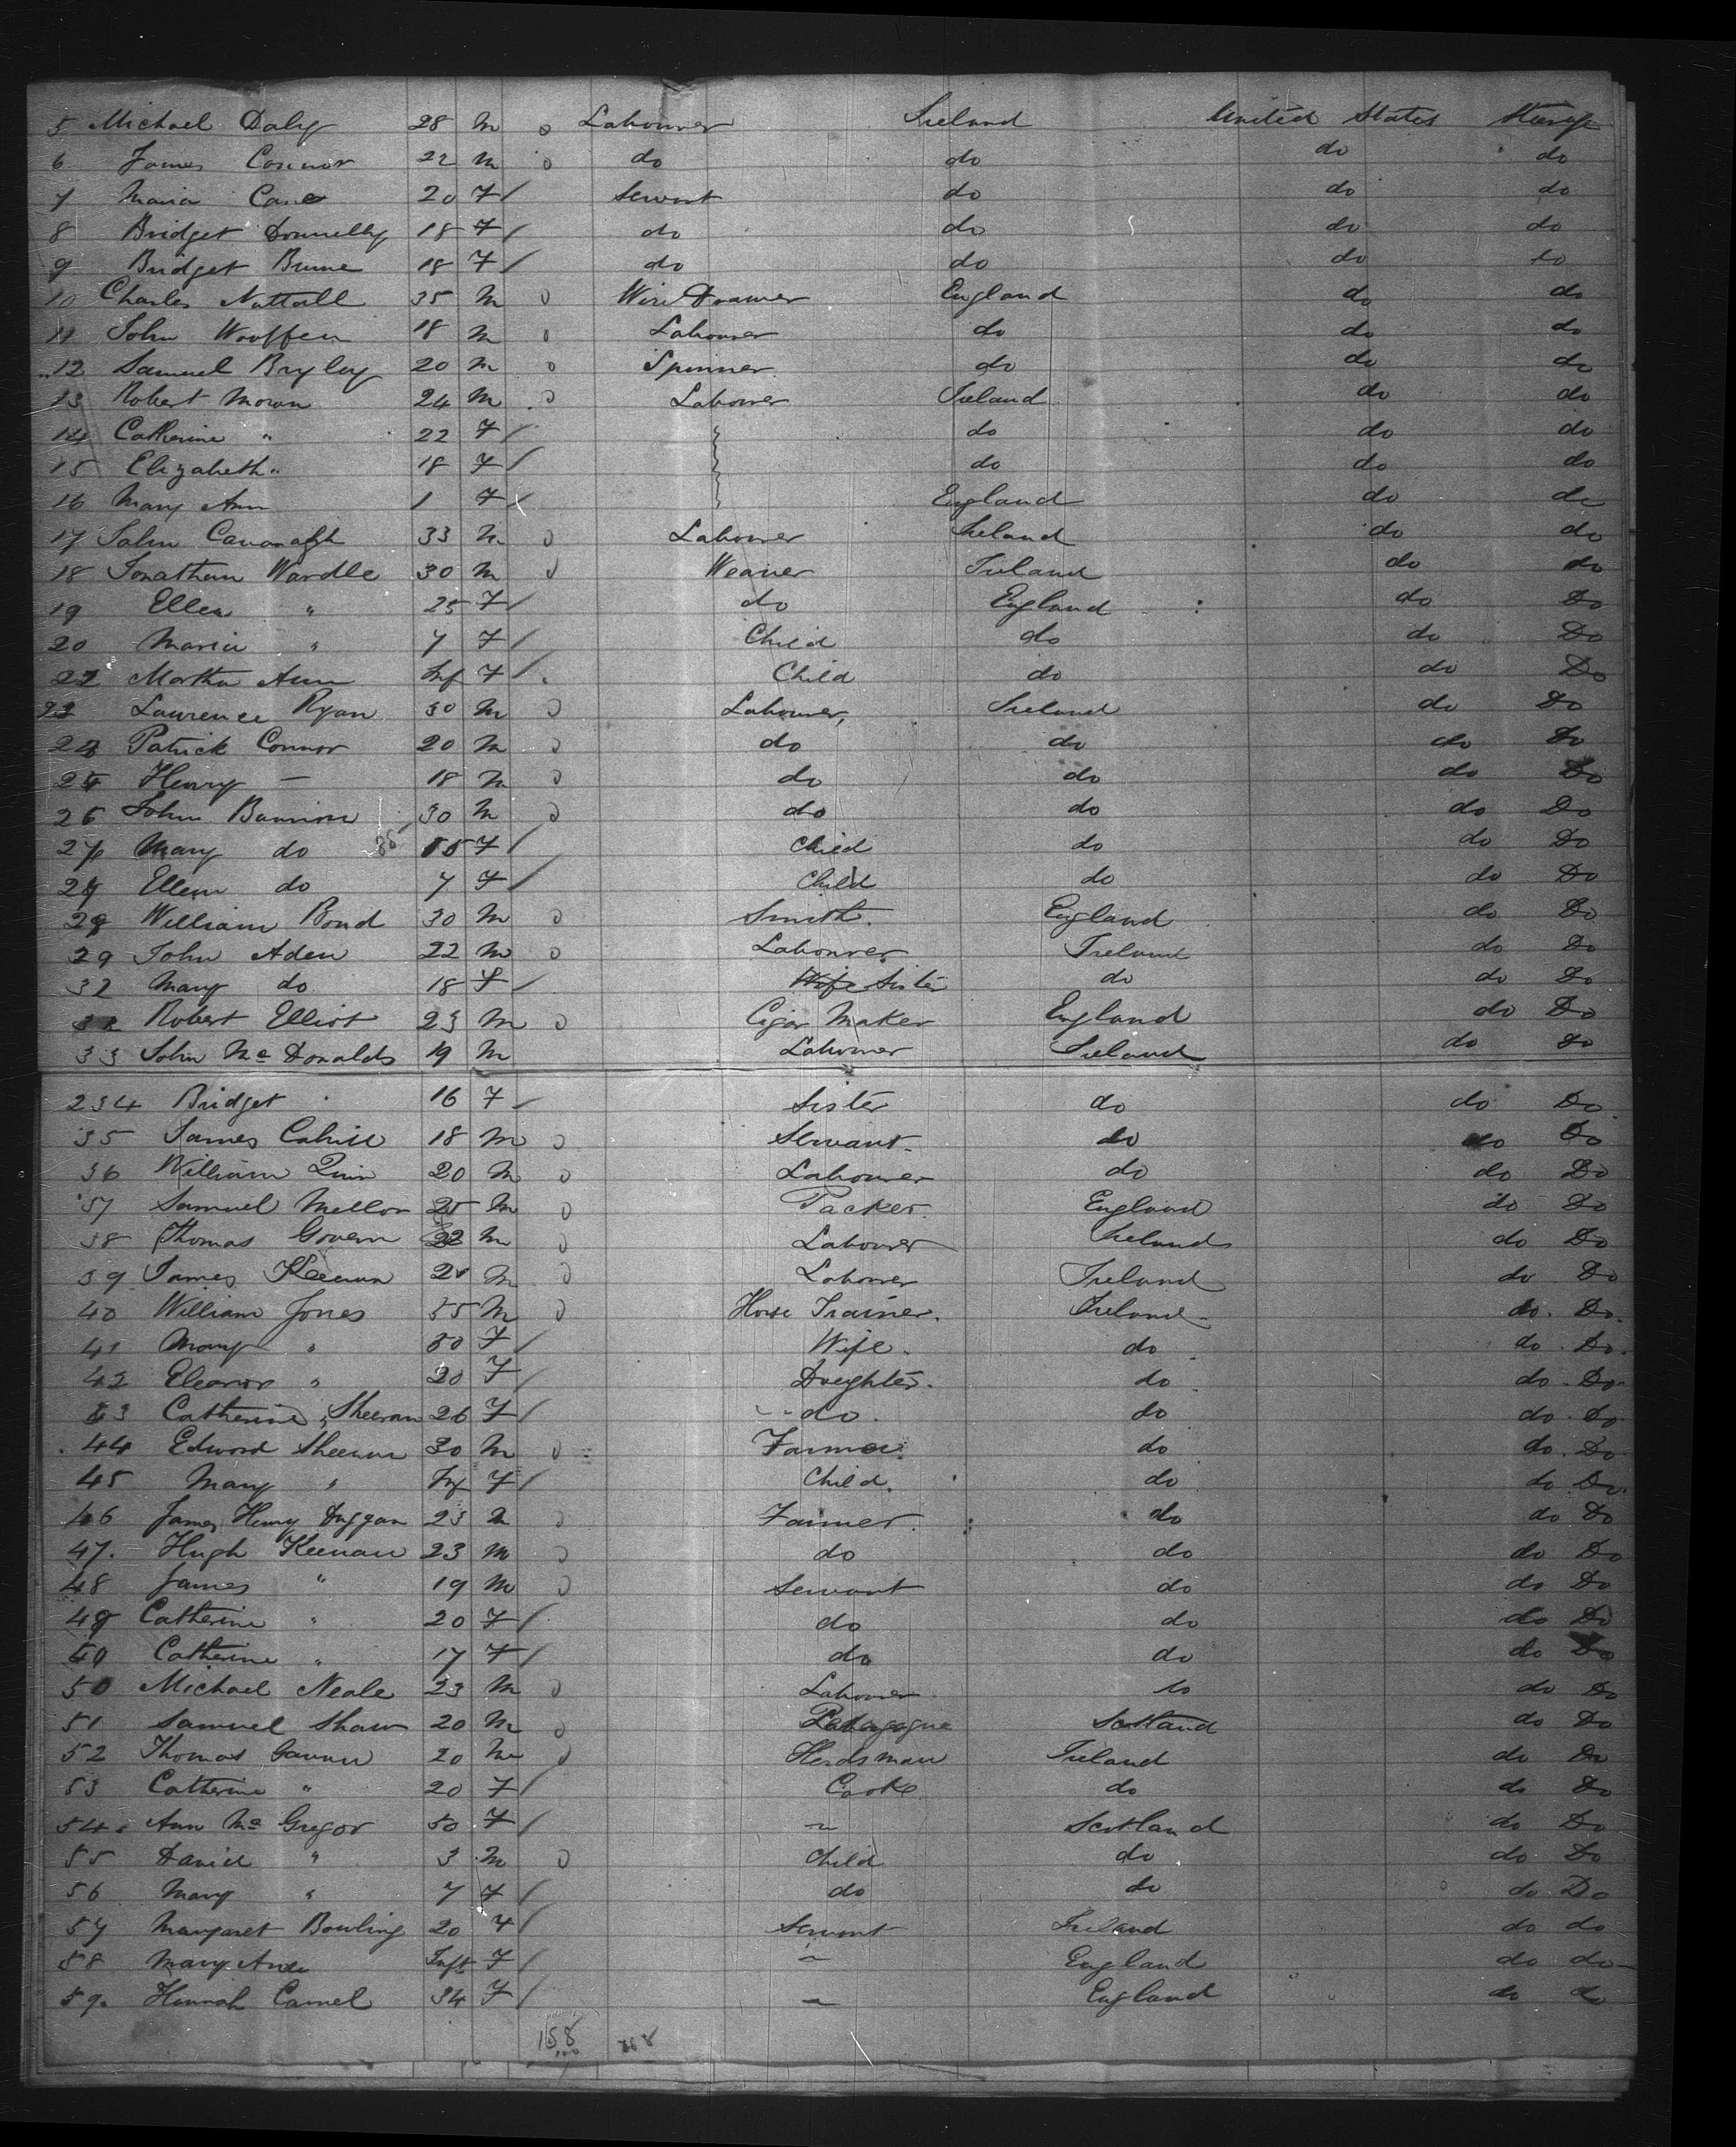 5 Michael Daly 28 M o Labourer Ireland United States Steerage
6 James Connor 22 M o do do do do
7 Maria Cane 20 F / Servant do do do
8 Bridget Donnelly 18 F / do do do do
9 Bridget Burne 18 F / do do do do
10 Charles Nuttall 35 M o Wire Drawer England do do
11 John Wooffen 18 M o Labourer do do do
12 Samuel Bryley 20 M o Spinner do do do
13 Robert Moran 24 M o Labourer Ireland do do
14 Catherine " 22 F / do do do
15 Elizabeth " 18 F / do do do
16 Mary Ann 1 F / England do do
17 John Cavanagh 33 M o Labourer Ireland do do
18 Jonathan Wardle 30 M o Weaver Ireland do do
19 Ellen " 25 F / do England do Do
20 Maria " 7 F / Child do do Do
22 Martha Ann Inf F / Child do do Do
23 Lawrence Ryan 30 M o Labourer, Ireland do Do
Patrick Connor 20 M o do do do Do
Henry — 18 M o do do do Do
26 John Bannion 30 M o do do do Do
27 Mary do F / Child do do Do
Ellen do 7 F / Child do do Do
William Bond 30 M o Smith. England do Do
29 John Aden 22 M o Labourer Ireland do Do
32 Mary do 18 F / Wife Sister do do Do
Robert Elliot 23 M o Cigar Maker England do Do
33 John Mc Donalds 19 M Labourer Ireland do do
234 Bridget 16 F / Sister do do Do
35 James Cahill 18 M o Servant. do do Do
36 William Quin 20 M o Labourer do do Do
37 Samuel Mellor 25 M o Packer. England do Do
38 Thomas Govern 22 M o Labourer Ireland do Do
39 James Keenan M o Labourer Ireland do Do
40 William Jones 55 M o Horse Trainer. Ireland do. Do.
41 Mary " 50 F / Wife. do do. Do.
42 Eleanor " 20 F / Daughter. do do. Do.
43 Catherine Sheeran 26 F / do. do do. Do.
44 Edward Sheeran 30 M o Farmer. do do. Do.
45 Mary " Inf F / Child. do do. Do.
46 James Henry Duggan 23 M o Farmer. do do Do
47. Hugh Keenan 23 M o do do do Do
48 James " 19 M o Servant do do Do
49 Catherine " 20 F / do do do Do
Catherine " 17 F / do do do Do
50 Michael Neale 23 M o Labourer do do Do
51 Samuel Shaw 20 M o Scotland do Do
52 Thomas Gavan 20 M o Herdsman Ireland do Do
53 Catherine " 20 F / Cooke do do Do
54. Ann Mc Gregor 50 F / ~ Scotland do Do
55 David " 3 M o Child do do Do
56 Mary " 7 F / do do do Do
57 Margaret Bowling 20 F / Servant Ireland do do
58 Mary Ann Inft F / ~ England do do
59. Hannah Camel 34 F / ~ England do do
158